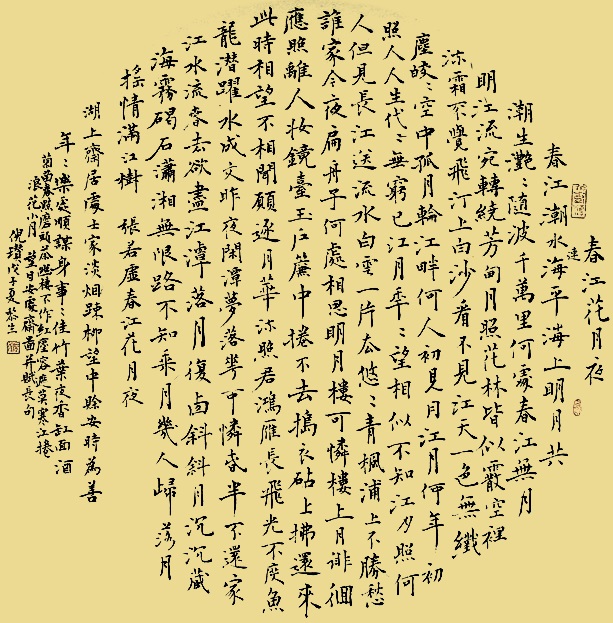 春江花月夜
春江潮水連海平海上明月共
潮生灩〻隨波千萬里何處春江無月
明江流宛轉繞芳甸月照花林皆似霰空裡
流霜不覺飛汀上白沙看不見江天一色無纖
塵皎〻空中孤月輪江畔何人初見月江月何年初
照人人生代〻無窮已江月年〻望相似不知江月照何
人但見長江送流水白雲一片去悠〻青楓浦上不勝愁
誰家今夜扁舟子何處相思明月樓可憐樓上月徘徊
應照離人妝鏡臺玉戶簾中捲不去搗衣砧上拂還來
此時相望不相聞願逐月華流照君鴻雁長飛光不度魚
龍潛躍水成文昨夜閑潭夢落花可憐春半不還家
江水流春去欲盡江潭落月復西斜斜月沉沉藏
海霧碣石瀟湘無限路不知乘月幾人歸落月
搖情滿江樹 張若虛春江花月夜
湖上齋居處士家淡烟疎柳望中賒安時為善
年〻樂處順謀身事〻佳竹葉夜香缸面酒
菊苗春點磨頭茶幽棲不作紅塵客遮莫寒江捲
浪花 月望日安處齋圖并賦長句
倪瓚 戊子夏